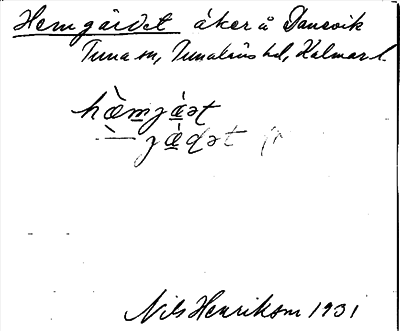 Hemgärdet åker å Danesvik
Tuna sn, Tunaläns hd, Kalmar l.
hæ̀mjæ̀ət
— jæ̀dət
Nils Henrikson 1931